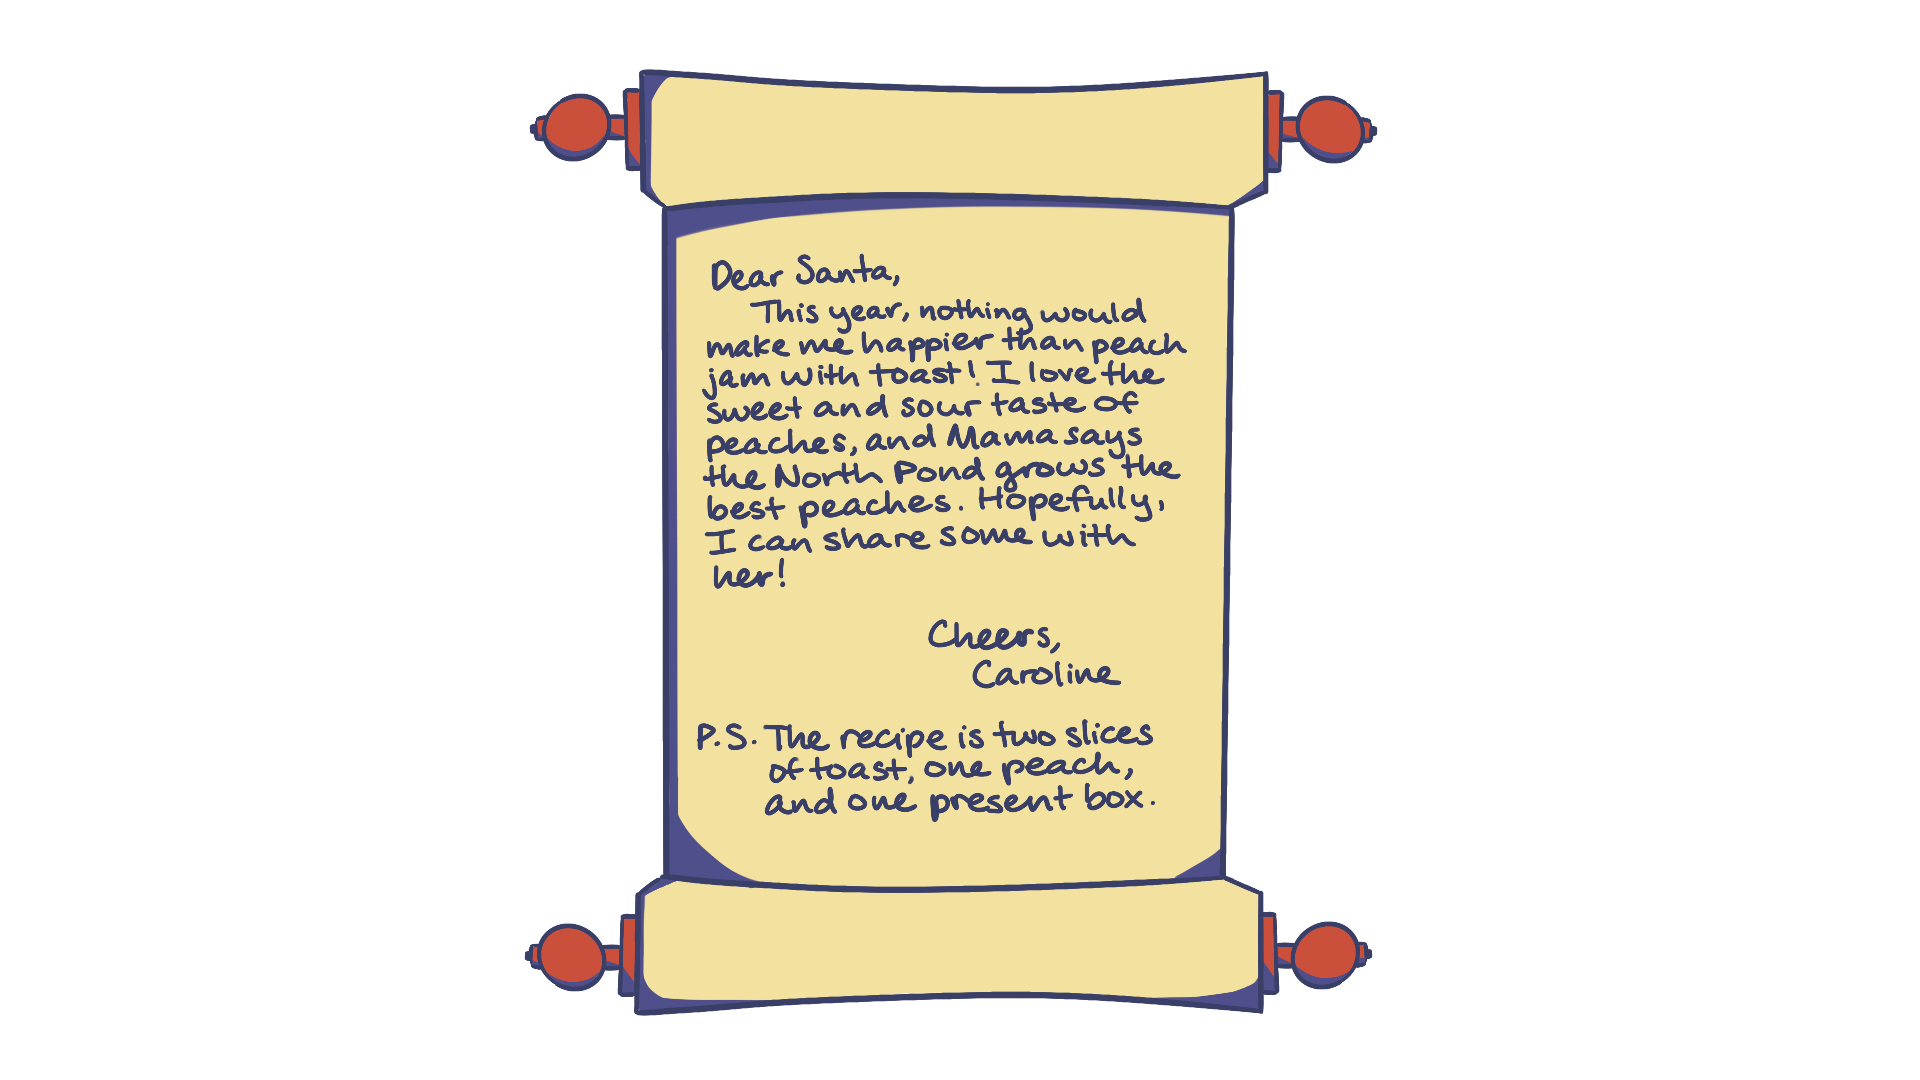 Dear Santa,
This year, nothing would
make me happier than peach
jam with toast! I love the
sweet and sour taste of
peaches, and Mama says
the North Pond grows the
best peaches. Hopefully,
I can share some with
her!
Cheers,
Caroline
P.S. The recipe is two slices
of toast, one peach,
and one present box.